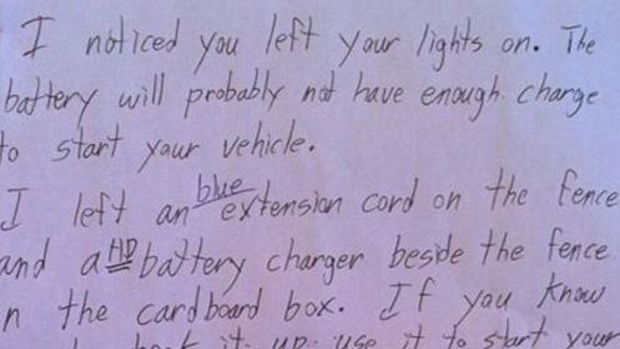 I noticed you left your lights on. The
battery will probably not have enough charge
to start your vehicle.
I left an blue extension cord on the fence
and a HD battery charger beside the fence
n the cardboard box. If you know
hook it up use it to start your